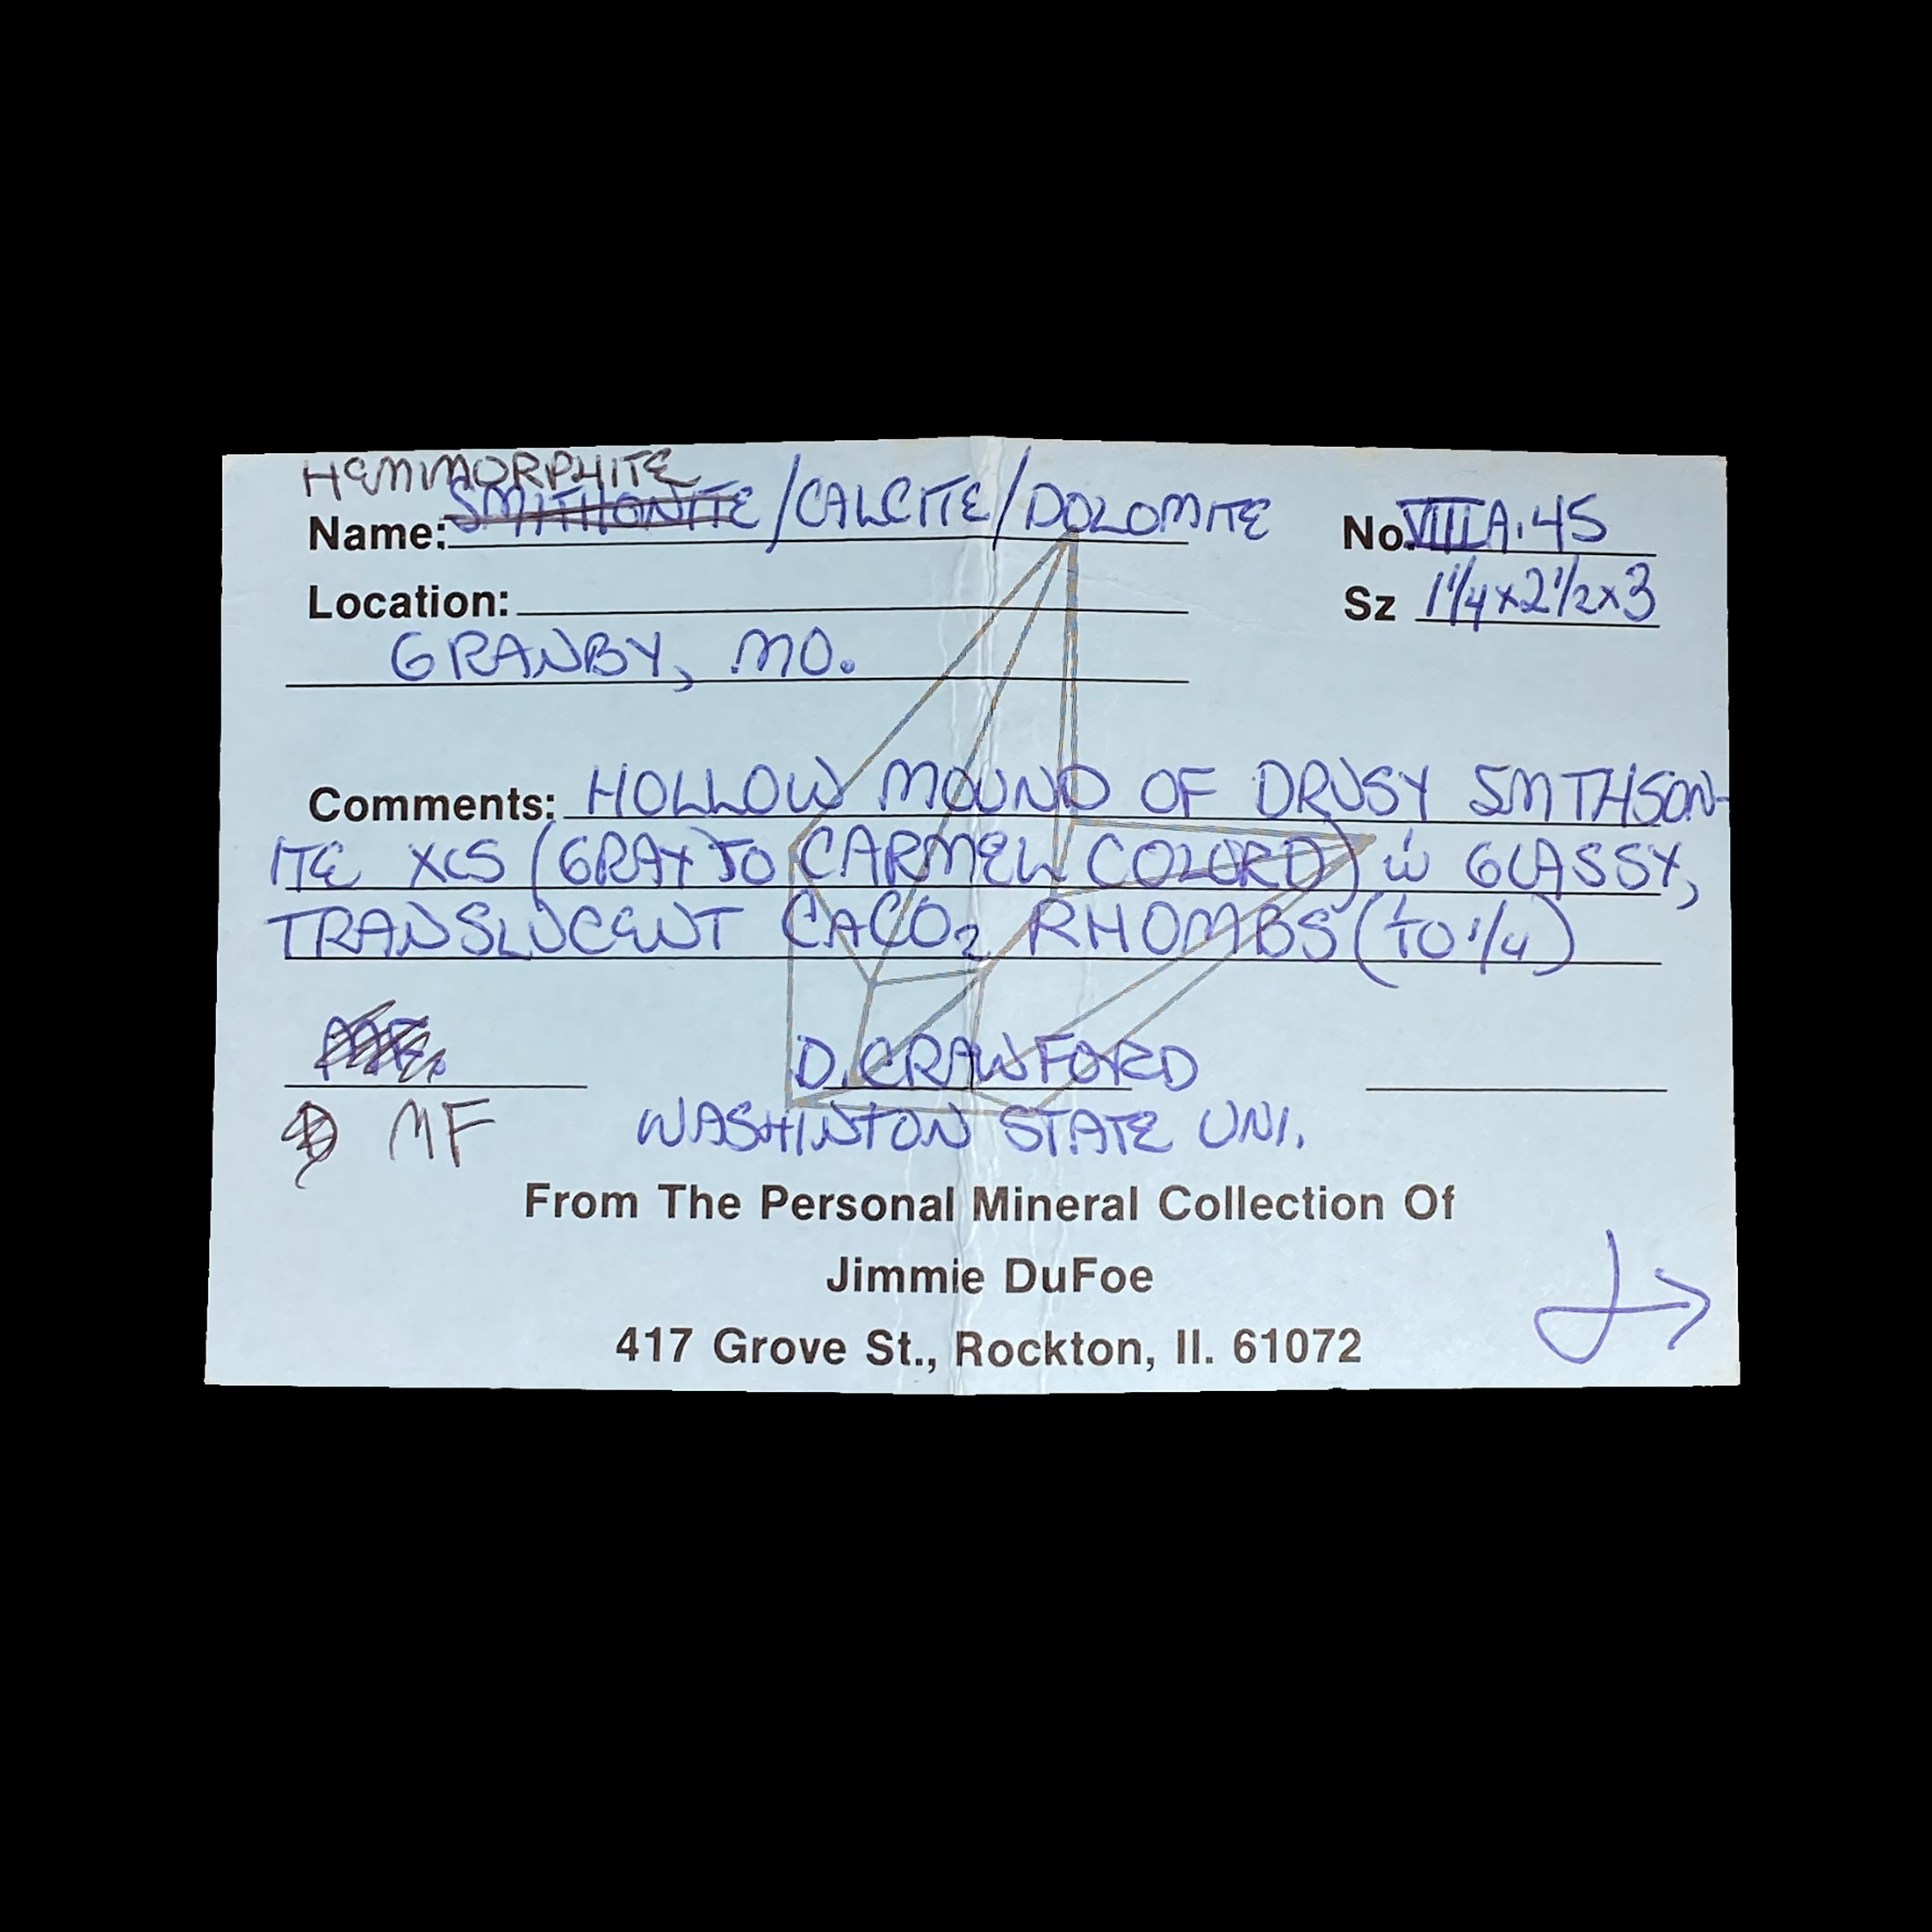 HEMMORPHITE
Name: SMITHONITE /CALCITE/DOLOMITE No. VIIIA.45
Location: Sz 1 1/4 x 2 1/2 x 3
GRANBY, MO.
Comments: HOLLOW MOUND OF DRUSY SMTHSON-
ITE XLS (GRAY TO CARMEL COLORD) w GLASSY,
TRANSLUCENT CACO2 RHOMBS (TO 1/4)
D. CRAWFORD
MF WASHINTON STATE UNI.
From The Personal Mineral Collection Of
Jimmie DuFoe
417 Grove St., Rockton, Il. 61072